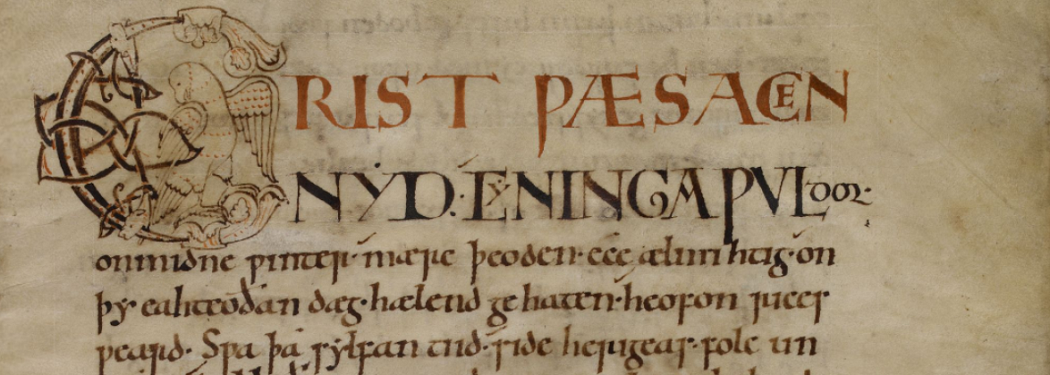 CRIST ǷÆS ACEN
NYD· CYNINGA ǷVLDOR·
onmidne ƿinter· mære þeoden· ece ælmihtig· on
þy· eahteoðan dæg· hælend ge haten· heofon rices
ƿeard· Sƿa þa sylfan tiid· side herigeas· folc un